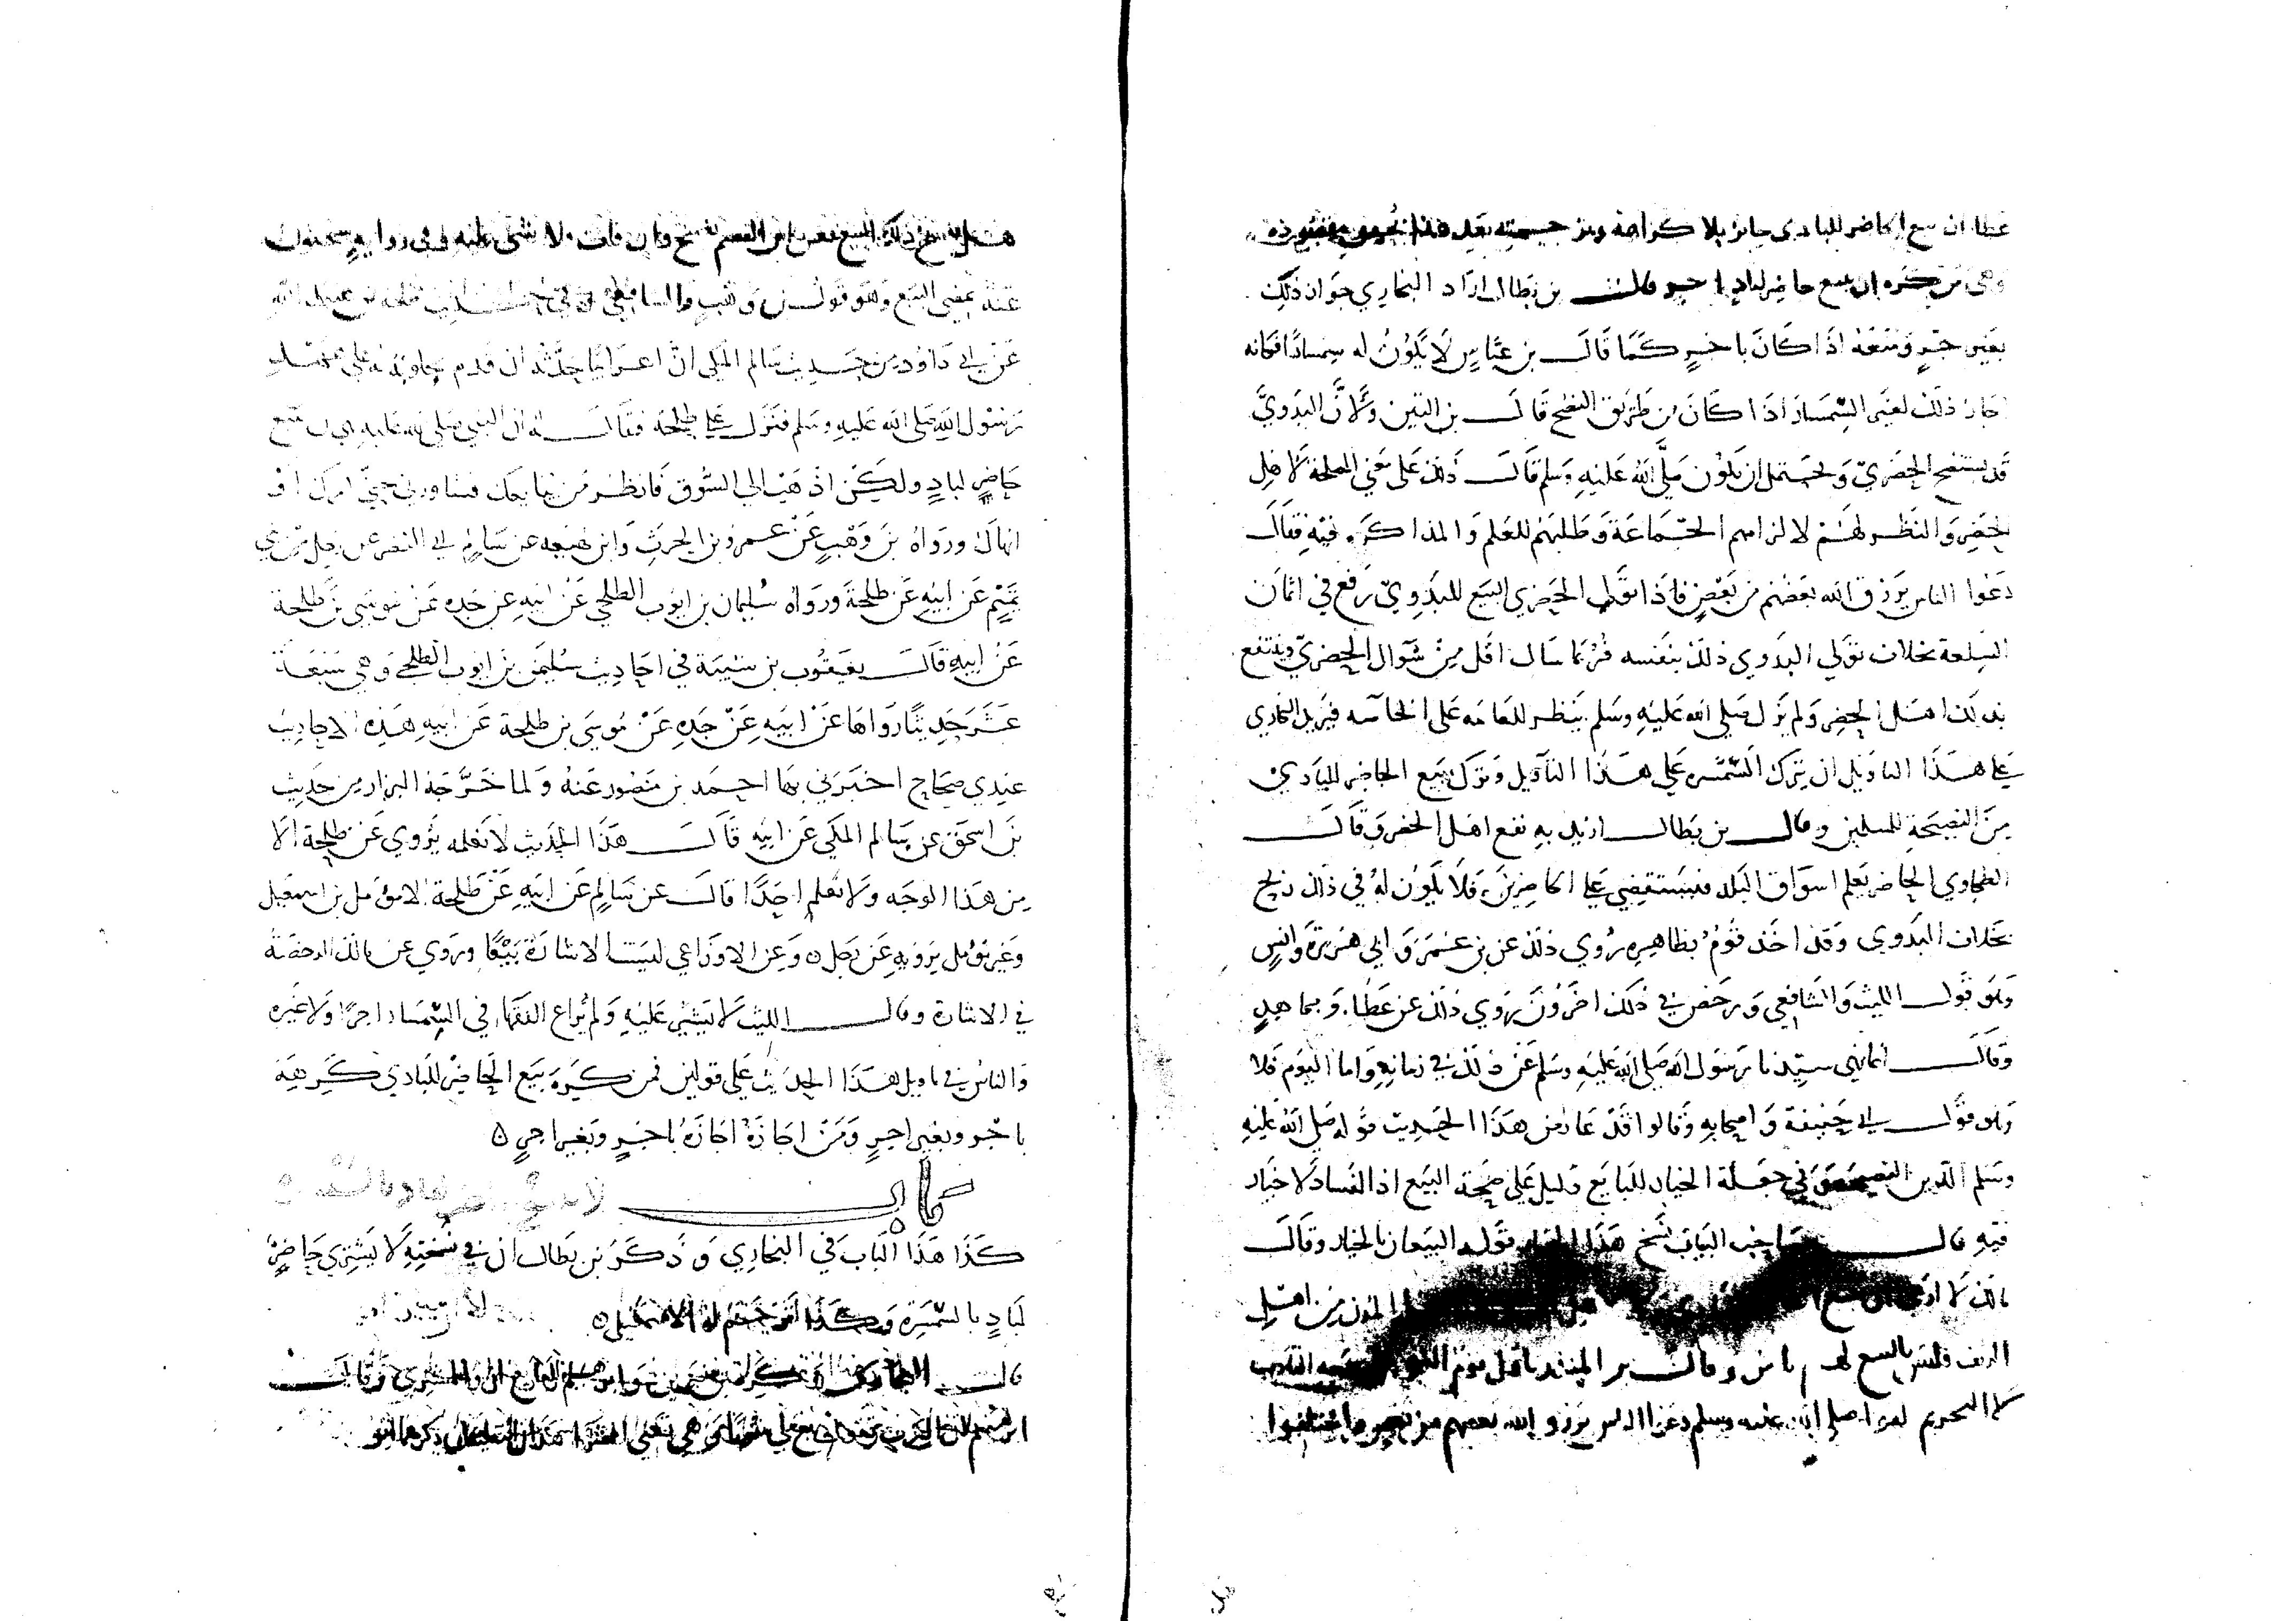 عطا ان بيع الحاضر للبادي جايز بلا كراهة ومن حجته
وهي من كره ان يبيع حاضر لباد باجر قال بن بطال اراد البخاري جواز ذلك
بغير اجر ومنعه اذا كان باجر كما قال بن عباس لا يكون له سمسارا فكانه
اجاز ذلك لغير السمسار اذا كان من طريق النصح قال بن التين ولان البدوي
قد يستنصح الحضري ويحتمل ان يكون صلى الله عليه وسلم قال ذلك على معنى المصلحة لاهل
الحضر والنظر لهم لالزامهم الجماعة وطلبهم للعلم والمذاكرة فيه فقال
دعوا الناس يرزق الله بعضهم من بعض فاذا تولى الحضري البيع للبدوي رفع في اثمان
السلعة بخلاف تولي البدوي ذلك بنفسه فربما سال اقل من سوال الحضري وينتفع
بذلك اهل الحضر ولم يزل صلى الله عليه وسلم ينظر للعامة على الخاصة فيريد البخاري
على هذا التاويل ان يترك السمسرة على هذا التاويل وترك بيع الحاضر للبادي
من النصيحة للمسلمين وقال بن بطال اريد به نفع اهل الحضر وقال
الطحاوي الحاضر يعلم اسواق البلد فيستقصي على الحاضرين فلا يكون له في ذلك ربح
بخلاف البدوي وقد اخذ قوم بظاهره روي ذلك عن بن عمر وابي هريرة وانس
وهو قول الليث والشافعي ورخص في ذلك اخرون روي ذلك عن عطا ومجاهد
وقال انما نهى سيدنا رسول الله صلى الله عليه وسلم عن ذلك في زمانه واما اليوم فلا
وهو قول ابي حنيفة واصحابه وقالوا قد عارض هذا الحديث قوله صلى الله عليه
وسلم الدين النصيحة وفي جعله الخيار للبايع دليل على صحة البيع اذ الفساد لا خيار
فيه قال صاحب البيان نسخ هذا الخبر قوله البيعان بالخيار وقال
مالك لا ارى المدن من اهل
الريف فليس بالبيع لهم باس وقال بن المنذر
على التحريم لقوله صلى الله عليه وسلم دعوا الناس يرزق الله بعضهم من بعض واختلفوا
هل يفسخ ذلك البيع فعن ابن القسم يفسخ وان فات فلا شي عليه وفي رواية سحنون
عنه يمضي البيع وهو قول بن وهب والشافعي
عن ابي داود من حديث سالم المكي ان اعرابيا حدثه انه قدم بحلوبة له على عهد
رسول الله صلى الله عليه وسلم فنزل على طلحة فقال له ان النبي صلى الله عليه نهى ان يبيع
حاضر لباد ولكن اذهب الى السوق فانظر من يبايعك فشاورني حتى امرك او
انهاك ورواه بن وهب عن عمرو بن الحرث وابن لهيعة عن سالم ابي النضر عن رجل من بني
تميم عن ابيه عن طلحة ورواه سليمان بن ايوب الطلحي عن ابيه عن جده عن موسى بن طلحة
عن ابيه قال يعقوب بن شيبة في احاديث سليمن بن ايوب الطلحي وهي سبعة
عشر حديثا رواها عن ابيه عن جده عن موسى بن طلحة عن ابيه هذه الاحاديث
عندي صحاح اخبرني بها احمد بن منصور عنه ولما خرجه البزار من حديث
بن اسحق عن سالم المكي عن ابيه قال هذا الحديث لا نعلمه يروى عن طلحة الا
من هذا الوجه ولا نعلم احدا قال عن سالم عن ابيه عن طلحة الا مومل بن اسمعيل
وغير مومل يرويه عن رجل وعن الاوزاعي ليست الاشارة بيعا وروي عن مالك الرخصة
في الاشارة وقال الليث لا يشير عليه ولم يراع الفقها في السمسار اجرا ولا غيره
والناس في تاويل هذا الحديث على قولين فمن كره بيع الحاضر للبادي كرهه
باجر وبغير اجر ومن اجازه اجازه باجر وبغير اجر
باب لا يبيع حاضر لباد بالسمسرة
كذا هذا الباب في البخاري وذكر بن بطال ان في نسخته لا يشتري حاضر
لباد بالسمسرة وكذا ترجم له الاسمعيلي
قال البخاري وكرهه بن سيرين وابرهيم للبايع والمشتري وقال
ابرهيم ان العرب تقول بع لي ثوبا وهي تعني الشرا هذا التعليق ذكره